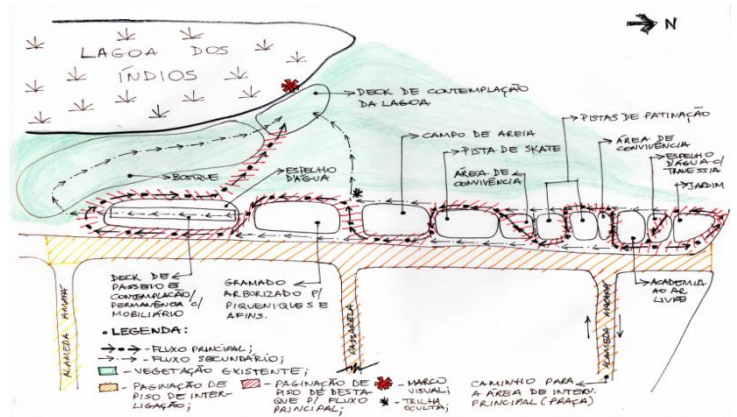 N
LAGOA DOS
ÍNDIOS
DECK DE CONTEMPLAÇÃO
DA LAGOA
PISTAS DE PATINAÇÃO
CAMPO DE AREIA
ÁREA DE
CONVIVÊNCIA
PISTA DE SKATE
ESPELHO
D'ÁGUA C/
TRAVESSIA
ÁREA DE
CONVIVÊNCIA
JARDIM
BOSQUE
ESPELHO
D'ÁGUA
DECK DE
PASSEIO E
CONTEMPLAÇÃO/
PERMANÊNCIA C/
MOBILIÁRIO
GRAMADO
ARBORIZADO P/
PIQUENIQUES E
AFINS.
ACADEMIA
AO AR
LIVRE
ALAMEDA
PASSARELA
ALAMEDA
• LEGENDA:
- FLUXO PRINCIPAL;
- FLUXO SECUNDÁRIO;
- VEGETAÇÃO EXISTENTE;
- PAGINAÇÃO DE
PISO DE INTER-
LIGAÇÃO;
- PAGINAÇÃO DE
PISO DE DESTA-
QUE P/ FLUXO
PRINCIPAL;
- MARCO
VISUAL;
- TRILHA
OCULTA;
CAMINHO PARA
A ÁREA DE INTERV.
PRINCIPAL (PRAÇA)